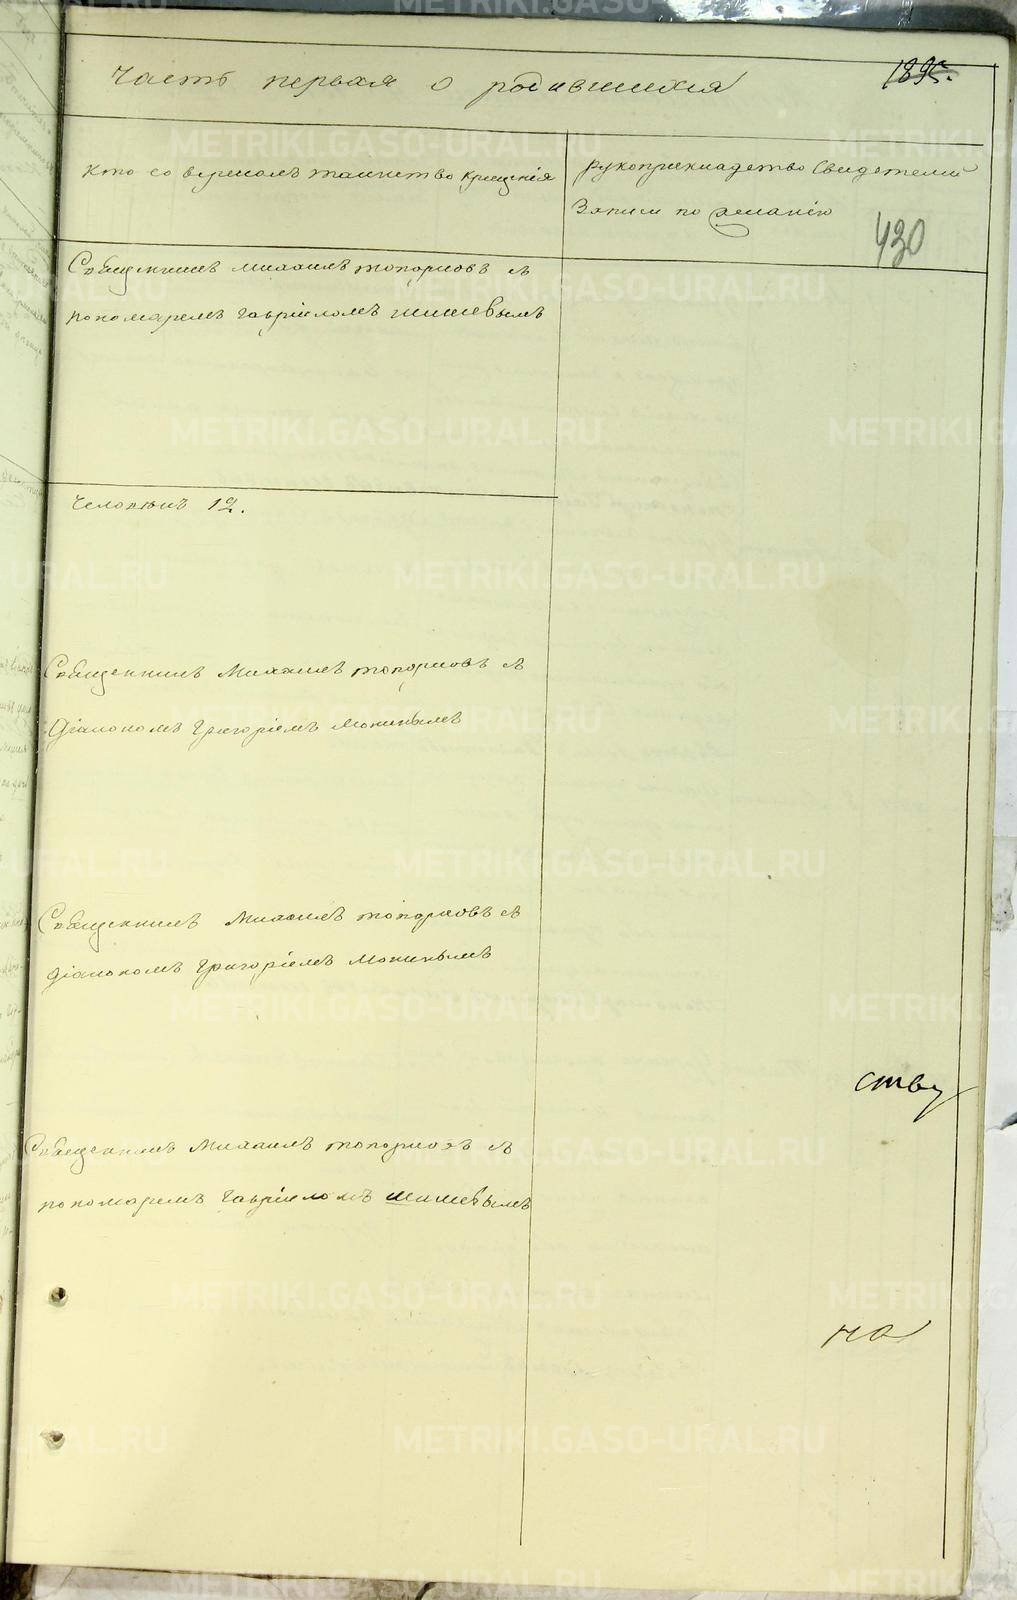 Часть первая о родившихся
1895.
Кто совершалъ таинство крещенія
Рукоприкладство Свидетелей
Записи по желанію
430
Священникъ Михаилъ Топорковъ съ
пономаремъ Гавріиломъ Шишевымъ
Человѣкъ 12.
Священникъ Михаилъ Топорковъ съ
Діакономъ Григоріемъ Мокинымъ
Священникъ Михаилъ Топорковъ съ
Діакономъ Григоріемъ Мокинымъ
ству
Священникъ Михаилъ Топорковъ съ
пономаремъ Гавріиломъ Шишевымъ
на
METRIKI.GASO-URAL.RU